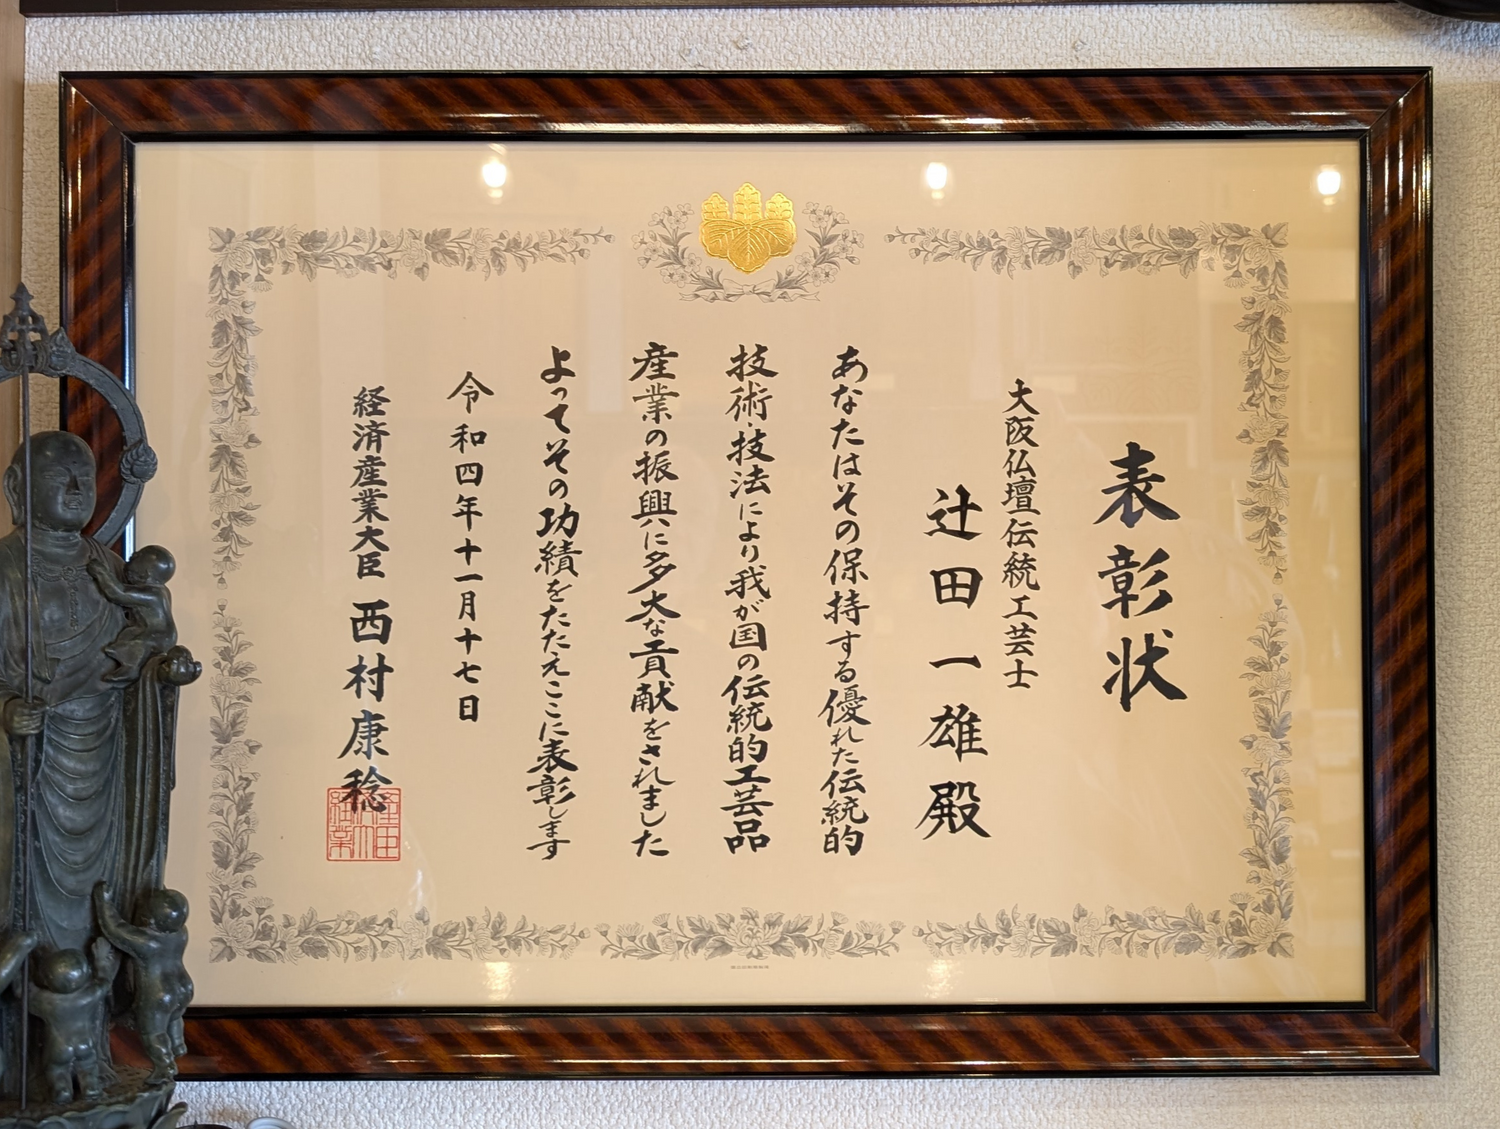 表彰状
大阪仏壇伝統工芸士
辻田一雄殿
あなたはその保持する優れた伝統的
技術・技法により我が国の伝統的工芸品
産業の振興に多大な貢献をされました
よってその功績をたたえここに表彰します
令和四年十一月十七日
経済産業大臣 西村康稔